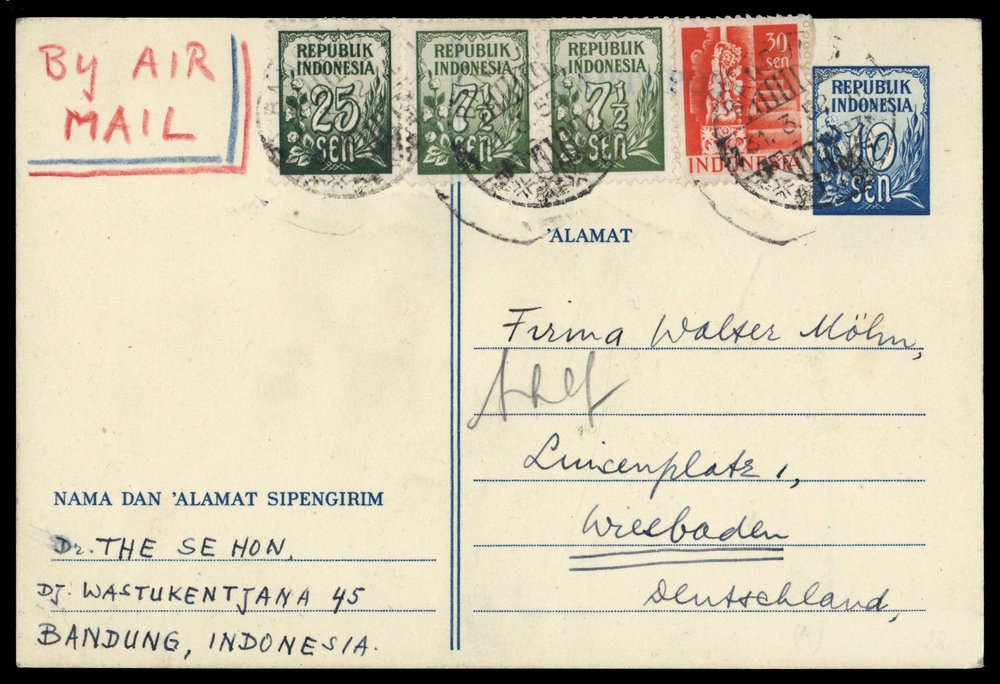 By AIR
MAIL
REPUBLIK
INDONESIA
25
SEN
REPUBLIK
INDONESIA
7½
SEN
REPUBLIK
INDONESIA
7½
SEN
30
sen
INDONESIA
REPUBLIK
INDONESIA
10
SEN
'ALAMAT
Firma Walter Möhn,
Luisenplatz 1,
Wiesbaden
Deutschland,
NAMA DAN 'ALAMAT SIPENGIRIM
Dr. THE SE HON.
DJ. WASTUKENTJANA 45
BANDUNG, INDONESIA.